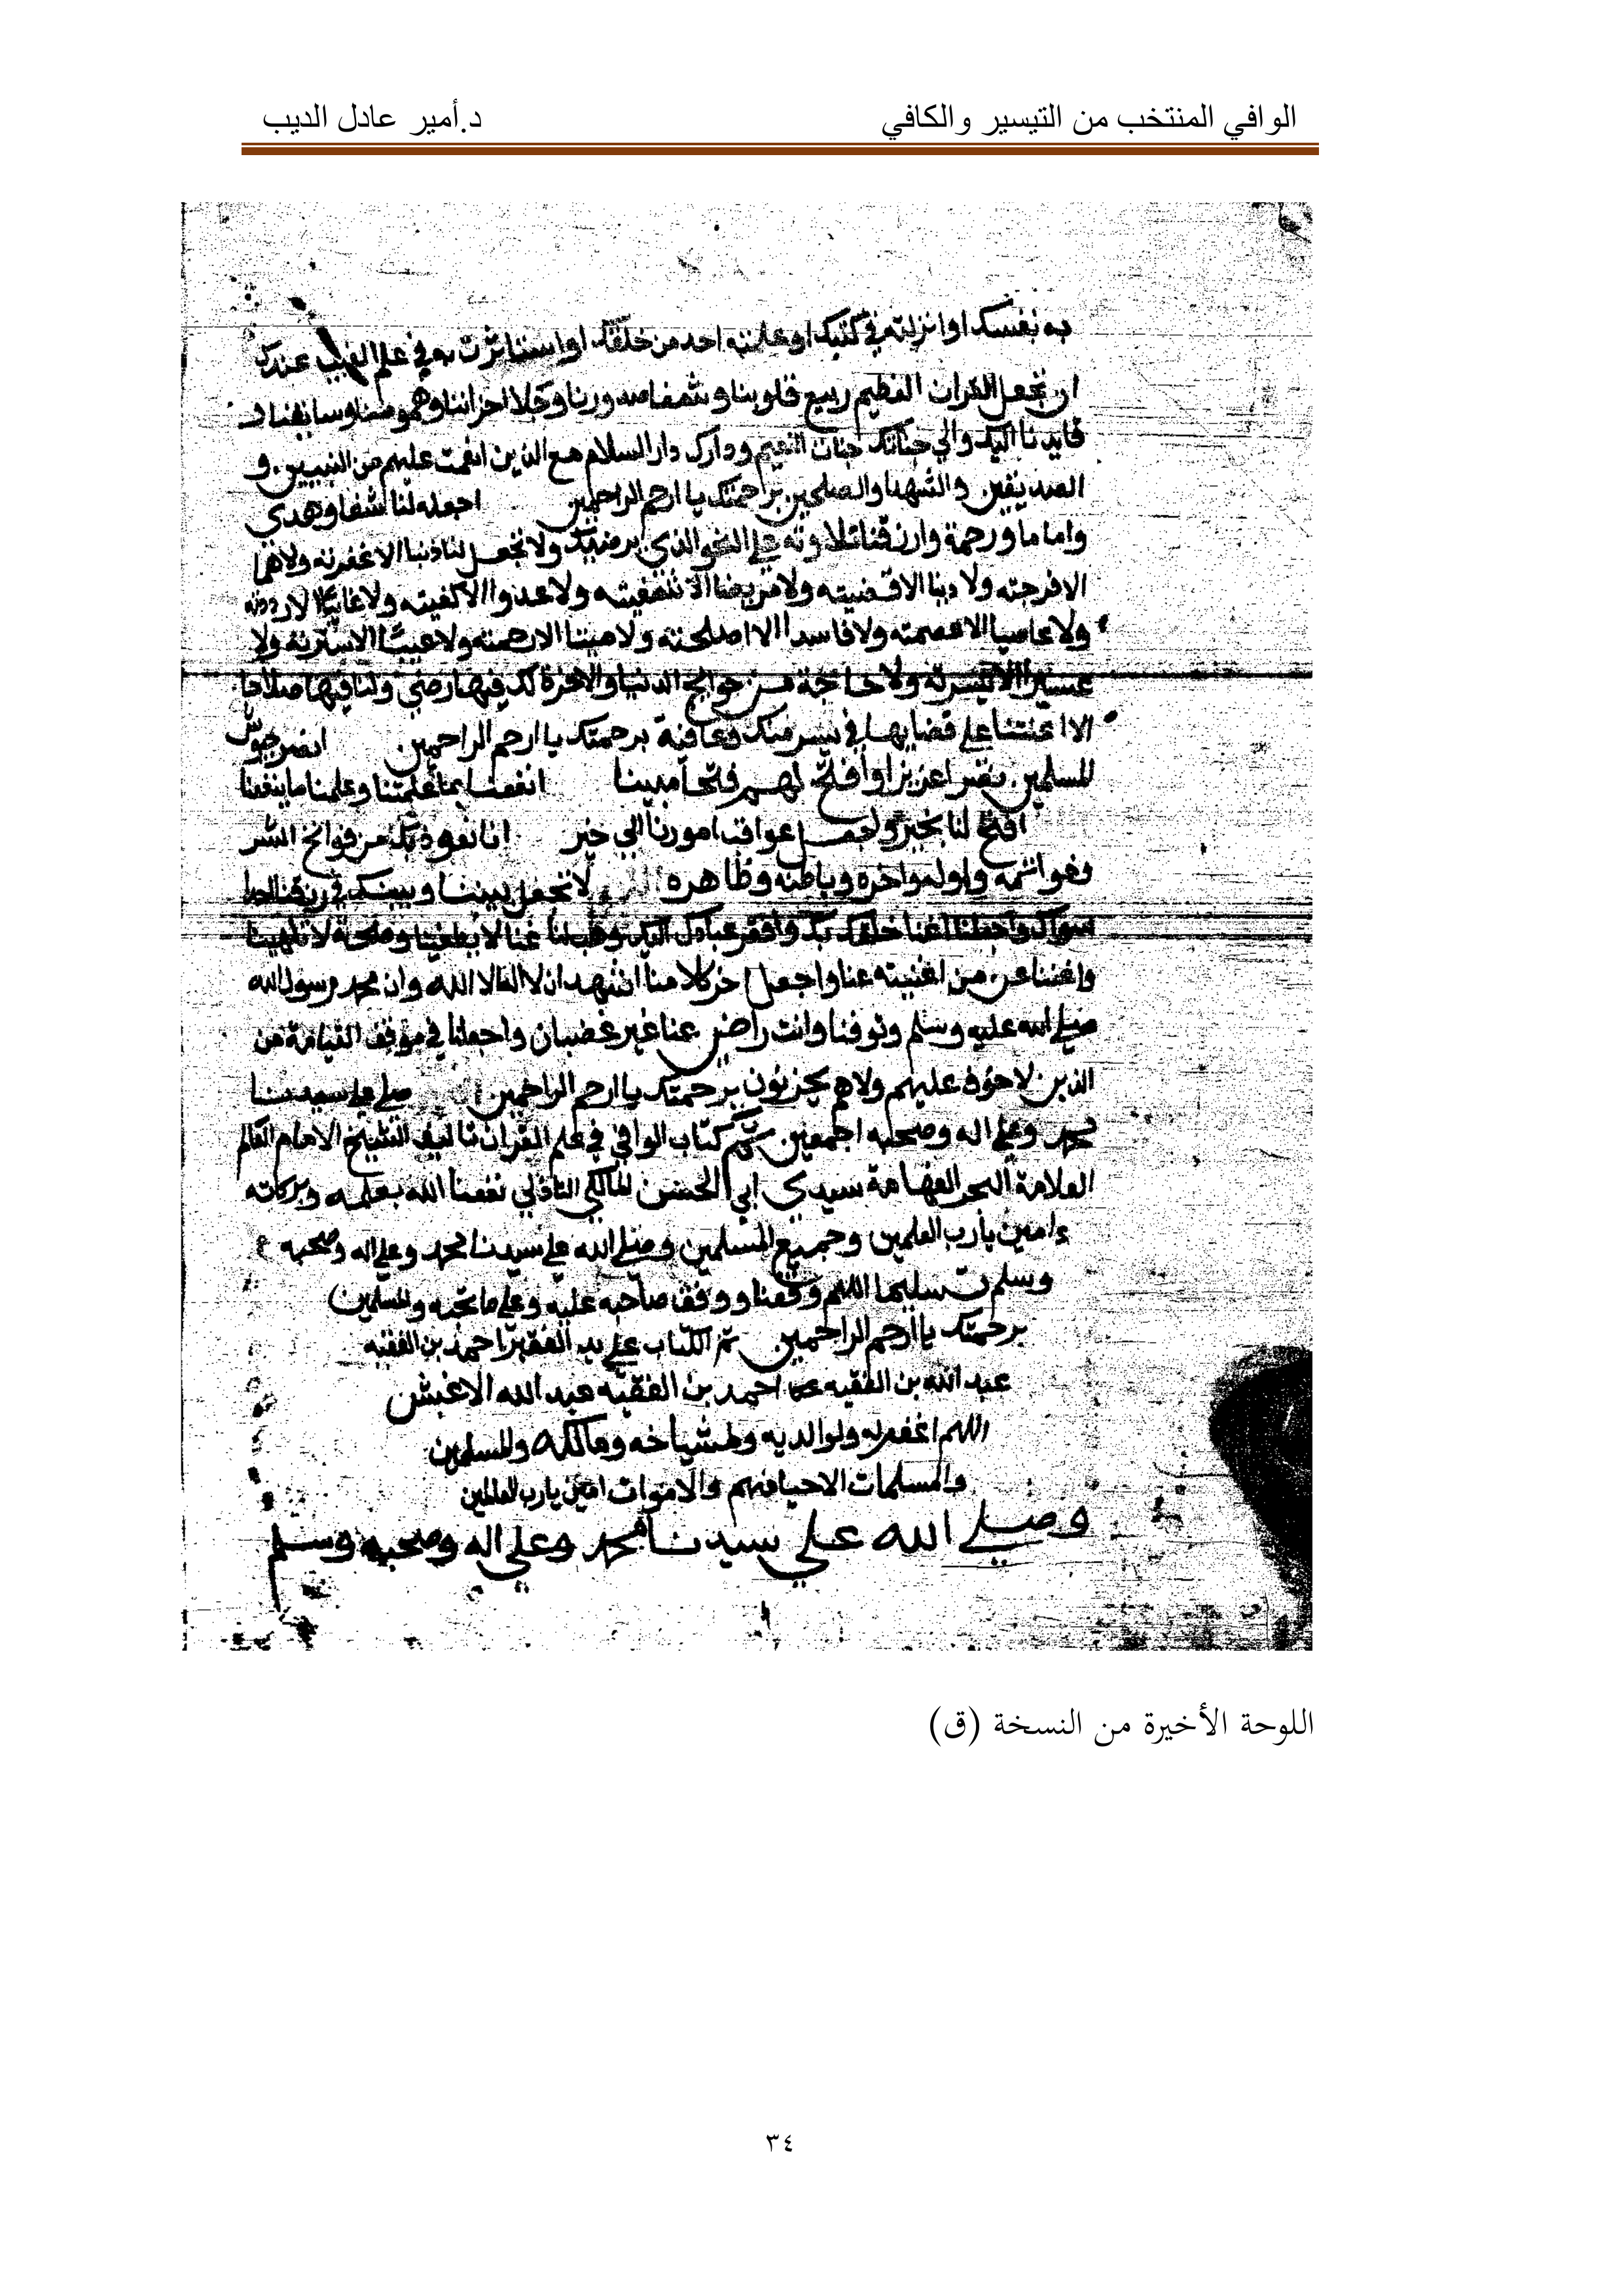 الوافي المنتخب من التيسير والكافي د.أمير عادل الديب
به نفسك او انزلته في كتبك او علمته احد من خلقك او استاثرت به في علم الغيب عندك
ان تجعل القران العظيم ربيع قلوبنا وشفا صدورنا وجلا احزاننا وهمومنا وسايقنا و
قايدنا اليك والي جناتك جنات النعيم ودارك دار السلام مع الذين انعمت عليهم من النبيين و
الصديقين والشهدا والصلحين برحمتك يا ارحم الراحمين اجعله لنا شفا وهدي
واماما ورحمة وارزقنا تلاوته علي النحو الذي يرضيك ولا تجعل لنا ذنبا الا غفرته ولا هما
الا فرجته ولا دينا الا قضيته ولا مريضا الا شفيته ولا عدوا الا كفيته ولا غايبا الا رددته
ولا عاصيا الا عصمته ولا فاسدا الا اصلحته ولا ميتا الا رحمته ولا عيبا الا سترته ولا
عسيرا الا يسرته ولا حاجة من حوايج الدنيا والاخرة لك فيها رضي ولنا فيها صلاحا
الا اعنتنا علي قضايها في يسر منك وعافية برحمتك يا ارحم الراحمين انصر جيوش
المسلمين نصرا عزيزا وافتح لهم فتحا مبينا انفعنا بما علمتنا وعلمنا ما ينفعنا
افتح لنا بخير واجعل عواقب امورنا الي خير انا نعوذ بك من فواتح الشر
وخواتمه واوله واخره وباطنه وظاهره لا تجعل بيننا وبينك في رزقنا احدا
سواك واجعلنا اغنا خلقك بك وافقر عبادك اليك وهب لنا غنا لا يطغينا وصحة لا تلهينا
واغننا عن من اغنيته عنا واجعل اخر كلامنا اشهد ان لا اله الا الله وان محمد رسول الله
صلي الله عليه وسلم وتوفنا وانت راض عنا غير غضبان واجعلنا في موقف القيامة من
الذين لا خوف عليهم ولا هم يحزنون برحمتك يا ارحم الراحمين صلي علي سيدنا
محمد وعلي اله وصحبه اجمعين تم كتاب الوافي في علم القران تاليف الشيخ الامام العالم
العلامة البحر الفهامة سيدي ابي الحسن المالكي الشاذلي نفعنا الله بعلمه وبركاته
ءامين يا رب العلمين وجميع المسلمين وصلي الله علي سيدنا محمد وعلي اله وصحبه
وسلم تسليما اللهم وفقنا ووفق صاحبه عليه وعلي ما تحبه والمسلمين
برحمتك يا ارحم الراحمين تم الكتاب علي يد الفقير احمد بن الفقيه
عبد الله بن الفقيه احمد بن الفقيه عبد الله الاغبش
اللهم اغفر له ولوالديه ولمشياخه ومالكه وللمسلمين
والمسلمات الاحيا منهم والاموات امين يا رب العالمين
وصلي الله علي سيدنا محمد وعلي اله وصحبه وسلم
اللوحة الأخيرة من النسخة (ق)
٣٤